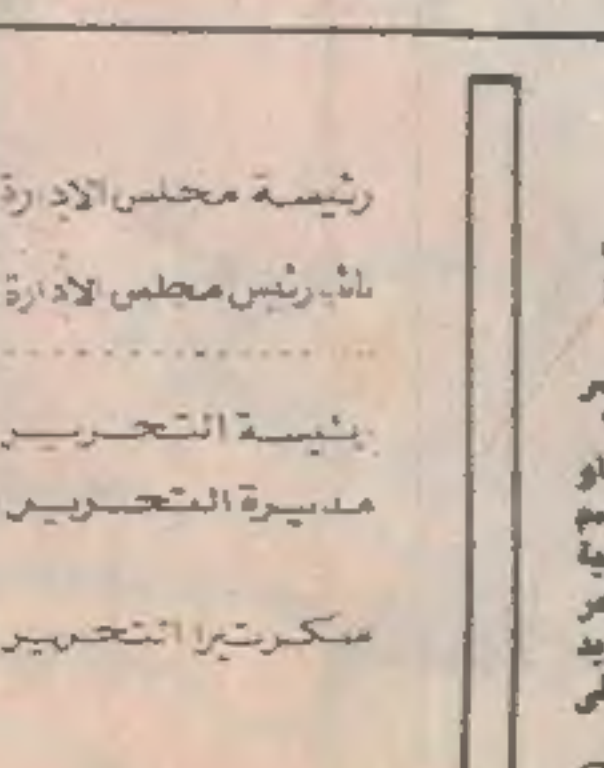 رئيسة مجلس الادارة
نائب رئيس مجلس الادارة
رئيسة التحرير
مديرة التحرير
سكرتيرا التحرير